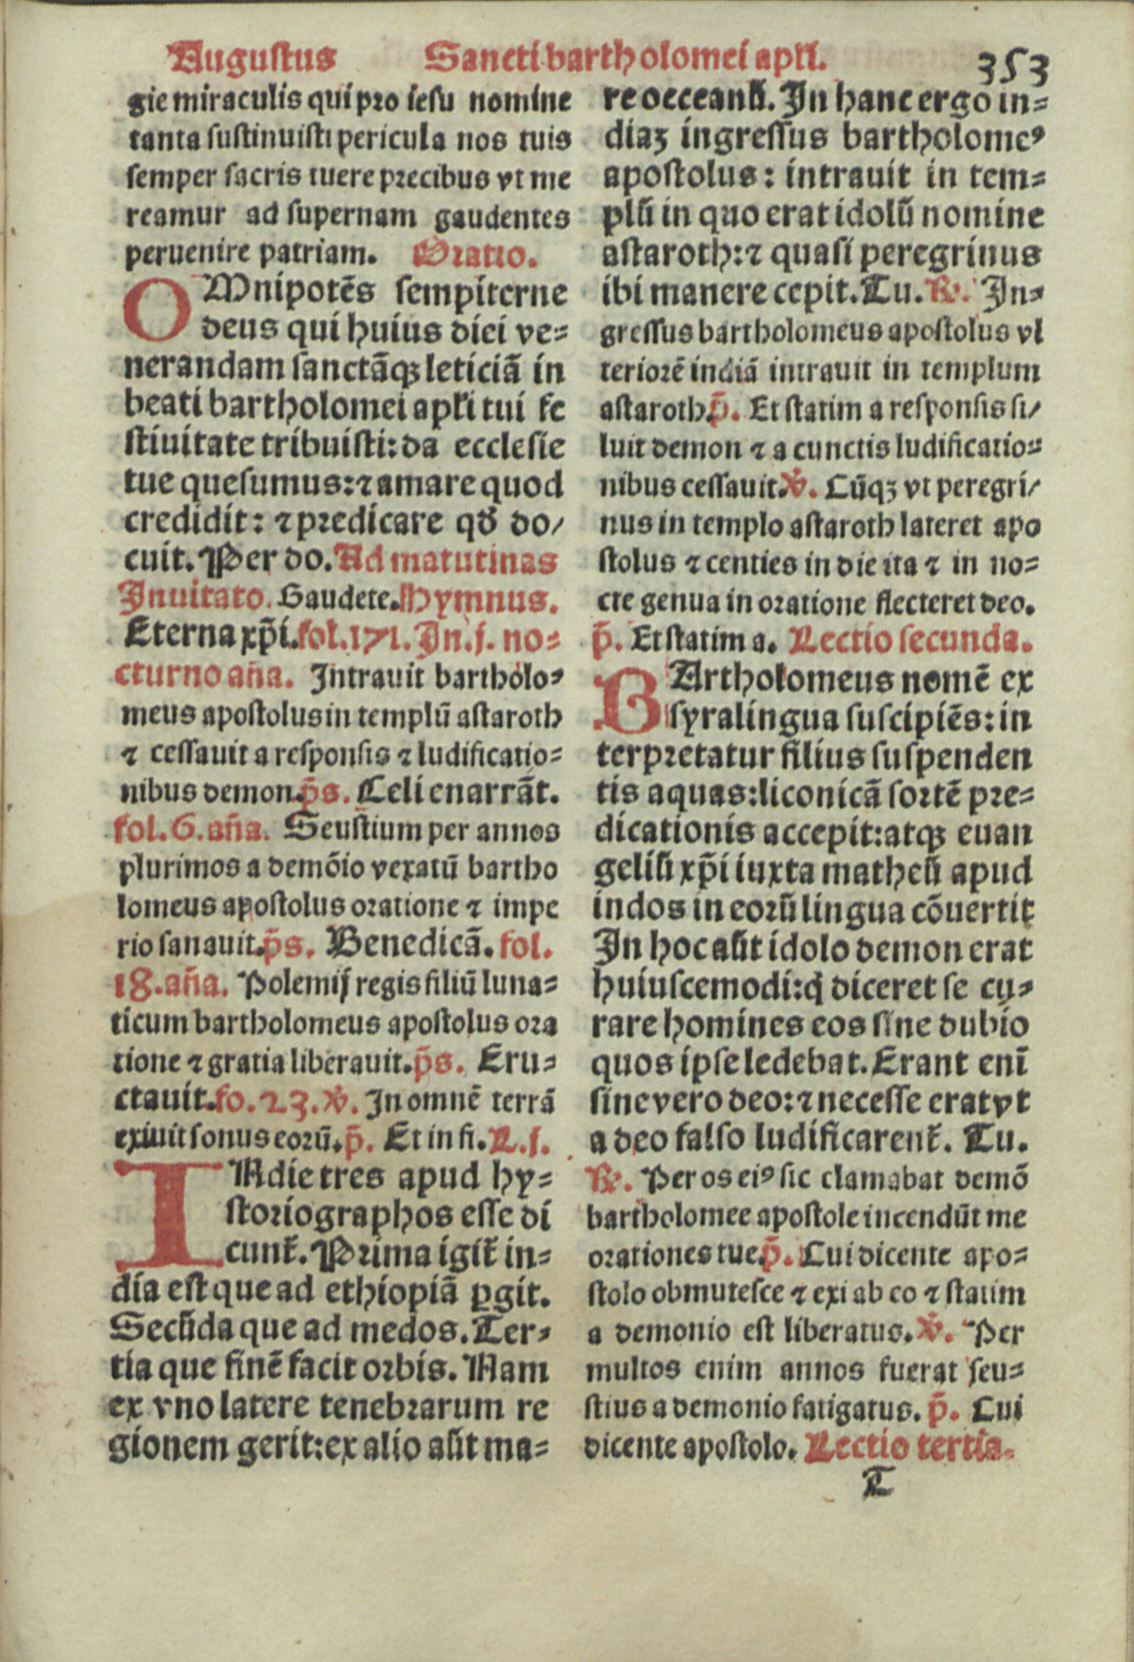 Augustus Sancti bartholomei apłi. 353
gie miraculis qui pro iesu nomine
tanta sustinuisti pericula nos tuis
semper sacris tuere precibus vt me
reamur ad supernam gaudentes
peruenire patriam. Oratio.
OMnipotēs sempiterne
deus qui huius diei ve=
nerandam sanctāqȝ leticiā in
beati bartholomei apłi tui fe
stiuitate tribuisti: da ecclesie
tue quesumus: ⁊ amare quod
credidit: ⁊ predicare qđ do/
cuit. Per do. Ad matutinas
Inuitato. Gaudete. Hymnus.
Eterna xp̄i. fol. 171. In .j. no=
cturno aña. Intrauit bartholo=
meus apostolus in templū astaroth
⁊ cessauit a responsis ⁊ ludificatio=
nibus demon. p̄s. Celi enarrāt.
fol. 6. aña. Seustium per annos
plurimos a demōio vexatū bartho
lomeus apostolus oratione ⁊ impe
rio sanauit. p̄s. Benedicā. fol.
18. aña. Polemij regis filiū luna=
ticum bartholomeus apostolus ora
tione ⁊ gratia liberauit. p̄s. Eru=
ctauit. fo. 23. ℣. In omnē terrā
exiuit sonus eorū. p̄. Et in fi. L. j.
INdie tres apud hy=
storiographos esse di
cunt̄. Prima igit̄ in=
dia est que ad ethiopiā ꝑgit.
Secūda que ad medos. Ter=
tia que finē facit orbis. Nam
ex vno latere tenebrarum re
gionem gerit: ex alio aūt ma=
re occeanū. In hanc ergo in=
diaȝ ingressus bartholomeꝰ
apostolus: intrauit in tem=
plū in quo erat idolū nomine
astaroth: ⁊ quasi peregrinus
ibi manere cepit. Tu. ℟. In=
gressus bartholomeus apostolus vl
teriorē indiā intrauit in templum
astaroth. p̄. Et statim a responsis si/
luit demon ⁊ a cunctis ludificatio=
nibus cessauit. ℣. Cūqȝ vt peregri/
nus in templo astaroth lateret apo
stolus ⁊ centies in die ita ⁊ in no=
cte genua in oratione flecteret deo.
p̄. Et statim a. Lectio secunda.
BArtholomeus nomē ex
syra lingua suscipiēs: in
terpretatur filius suspenden
tis aquas: liconicā sortē pre=
dicationis accepit: atqȝ euan
geliū xp̄i iuxta matheū apud
indos in eorū lingua cōuertit
In hoc aūt idolo demon erat
huiuscemodi: q̄ diceret se cu=
rare homines eos sine dubio
quos ipse ledebat. Erant enī
sine vero deo: ⁊ necesse erat vt
a deo falso ludificarent̄. Tu.
℟. Per os eiꝰ sic clamabat demō
bartholomee apostole incendūt me
orationes tue. p̄. Cui dicente apo=
stolo obmutesce ⁊ exi ab eo ⁊ statim
a demonio est liberatus. ℣. Per
multos enim annos fuerat seu=
stius a demonio fatigatus. p̄. Cui
dicente apostolo. Lectio tertia.